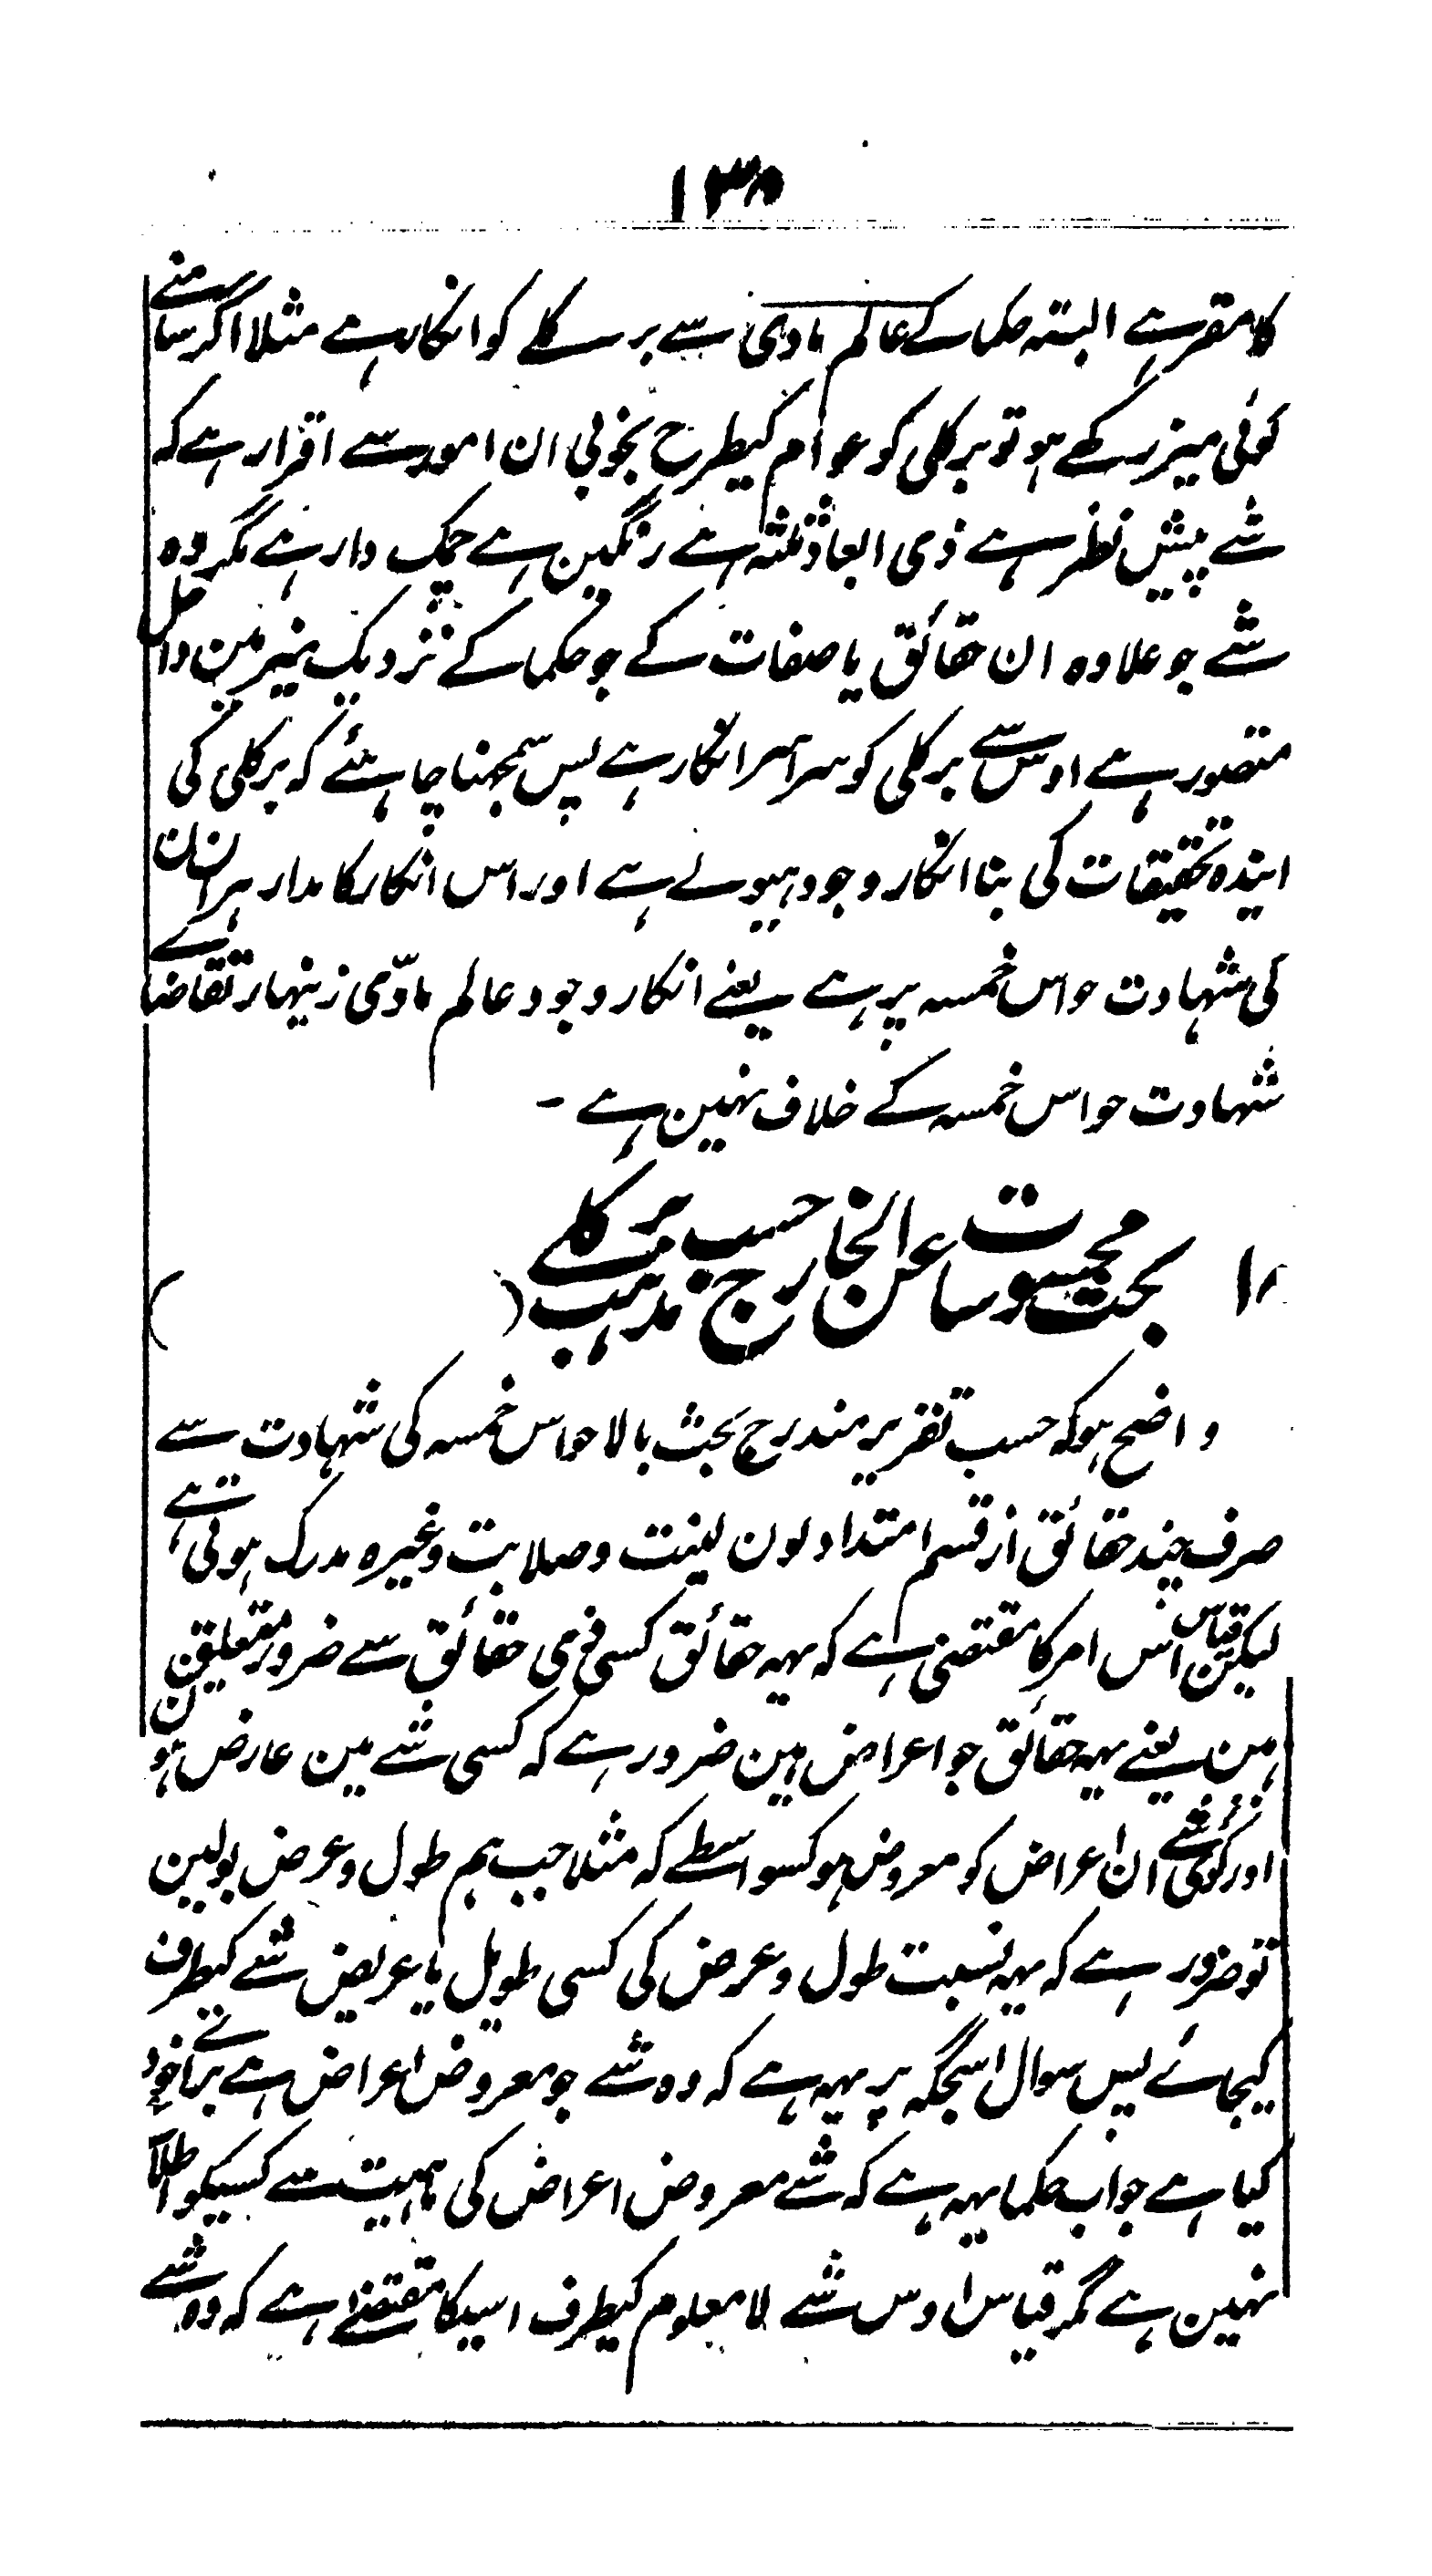 ۱۳۸
کا مقر ہے البتہ حکما کے عالم مادی سے برکلے کو انکار ہے مثلا اگر سامنے
کوئی میز رکھے ہو تو برکلی کو عوام کیطرح بخوبی ان امور سے اقرار ہے کہ
شے پیش نظر ہے ذی ابعاد ثلثہ ہے رنگین ہے چمک دار ہے مگر وہ
شے جو علاوہ ان حقائق یا صفات کے جو حکما کے نزدیک میز مین داخل
متصور ہے اوس سے برکلی کو سراسر انکار ہے پس سمجھنا چاہئے کہ برکلی کی
ایندہ تحقیقات کی بنا انکار وجود ہیولے ہے اور اس انکار کا مدار ہر انسان
کی شہادت حواس خمسہ پر ہے یعنے انکار وجود عالم مادّی زینہار تقاضاے
شہادت حواس خمسہ کے خلاف نہین ہے -
۱۸ بحث محسوسات عن الخارج حسب مذہب برکلے ( )
واضح ہو کہ حسب تقریر مندرج بحث بالا حواس خمسہ کی شہادت سے
صرف چند حقائق از قسم امتداد لون لینت و صلابت وغیرہ مدرک ہوتی ہے
لیکن قیاس اس امر کا مقتضی ہے کہ یہہ حقائق کسی حقائق سے ضرور متعلق
ہین یعنے یہہ حقائق جو اعراض ہین ضرور ہے کہ کسی شے مین عارض ہون
اور کوئی شے ان اعراض کو معروض ہو کسواسطے کہ مثلا جب ہم طول و عرض بولین
تو ضرور ہے کہ یہہ نسبت طول و عرض کی کسی طویل یا عریض شے کیطرف
کیجائے پس سوال اسجگہ پر یہہ ہے کہ وہ شے جو معروض اعراض ہے براتے خود
کیا ہے جواب حکما یہہ ہے کہ شے معروض اعراض کی ماہیت سے کسیکو اطلاع
نہین ہے مگر قیاس اوس شے لا معلوم کیطرف اسیکا مقتضے ہے کہ وہ شے